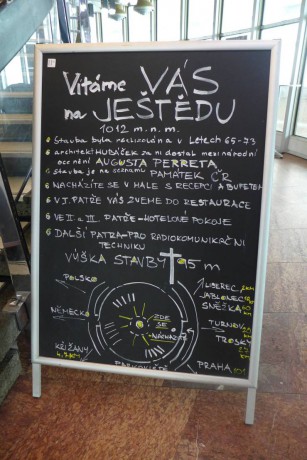 Vítáme VÁS
na JEŠTĚDU
1012 m.n.m.
Stavba byla realizována v Letech 65-73
architekt HUBÁČEK za ni dostal mezinárodní
ocenění AUGUSTA PERRETA
Stavba je na seznamu PAMÁTEK ČR
NACHÁZÍTE SE V HALE S RECEPCÍ A BUFETEM
V I. PATŘE VÁS ZVEME DO RESTAURACE
VE II. a III. PATŘE - HOTELOVÉ POKOJE
DALŠÍ PATRA - PRO RADIOKOMUNIKAČNÍ
TECHNIKU
VÝŠKA STAVBY 95 m
POLSKO
NĚMECKO
KŘIŽANY
ZDE
SE
NACHÁZÍTE
LIBEREC
JABLONEC
SNĚŽKA
TURNOV
TROSKY
PRAHA